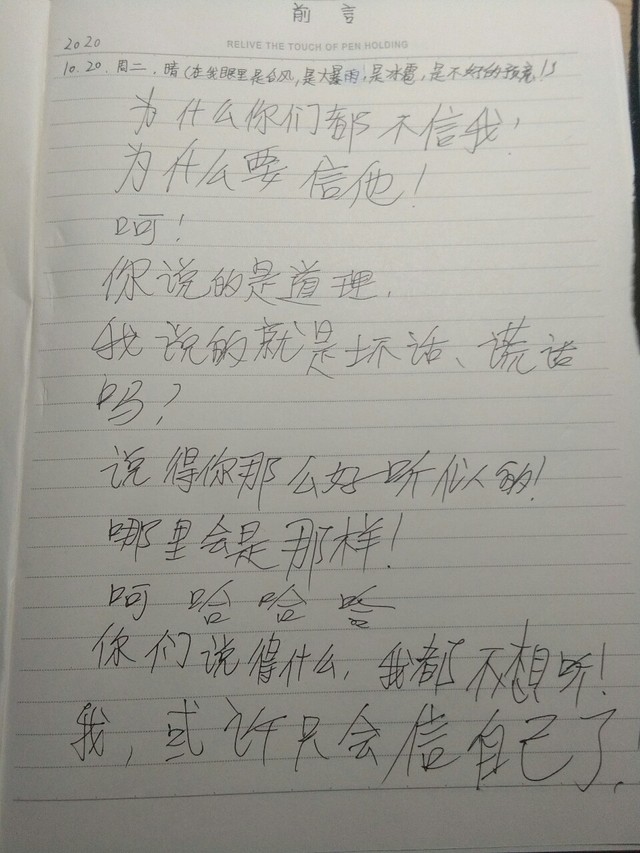 前言
2020
RELIVE THE TOUCH OF PEN HOLDING
10.20.周二.晴(在我眼里是台风,是大暴雨,是冰雹,是不好的预兆!)
为什么你们都不信我,
为什么要信他!
呵!
你说的是道理.
我说的就是坏话、谎话
吗?
说得你那么好听似的!
哪里会是那样!
呵哈哈哈
你们说得什么,我都不想听!
我,或许只会信自己了.